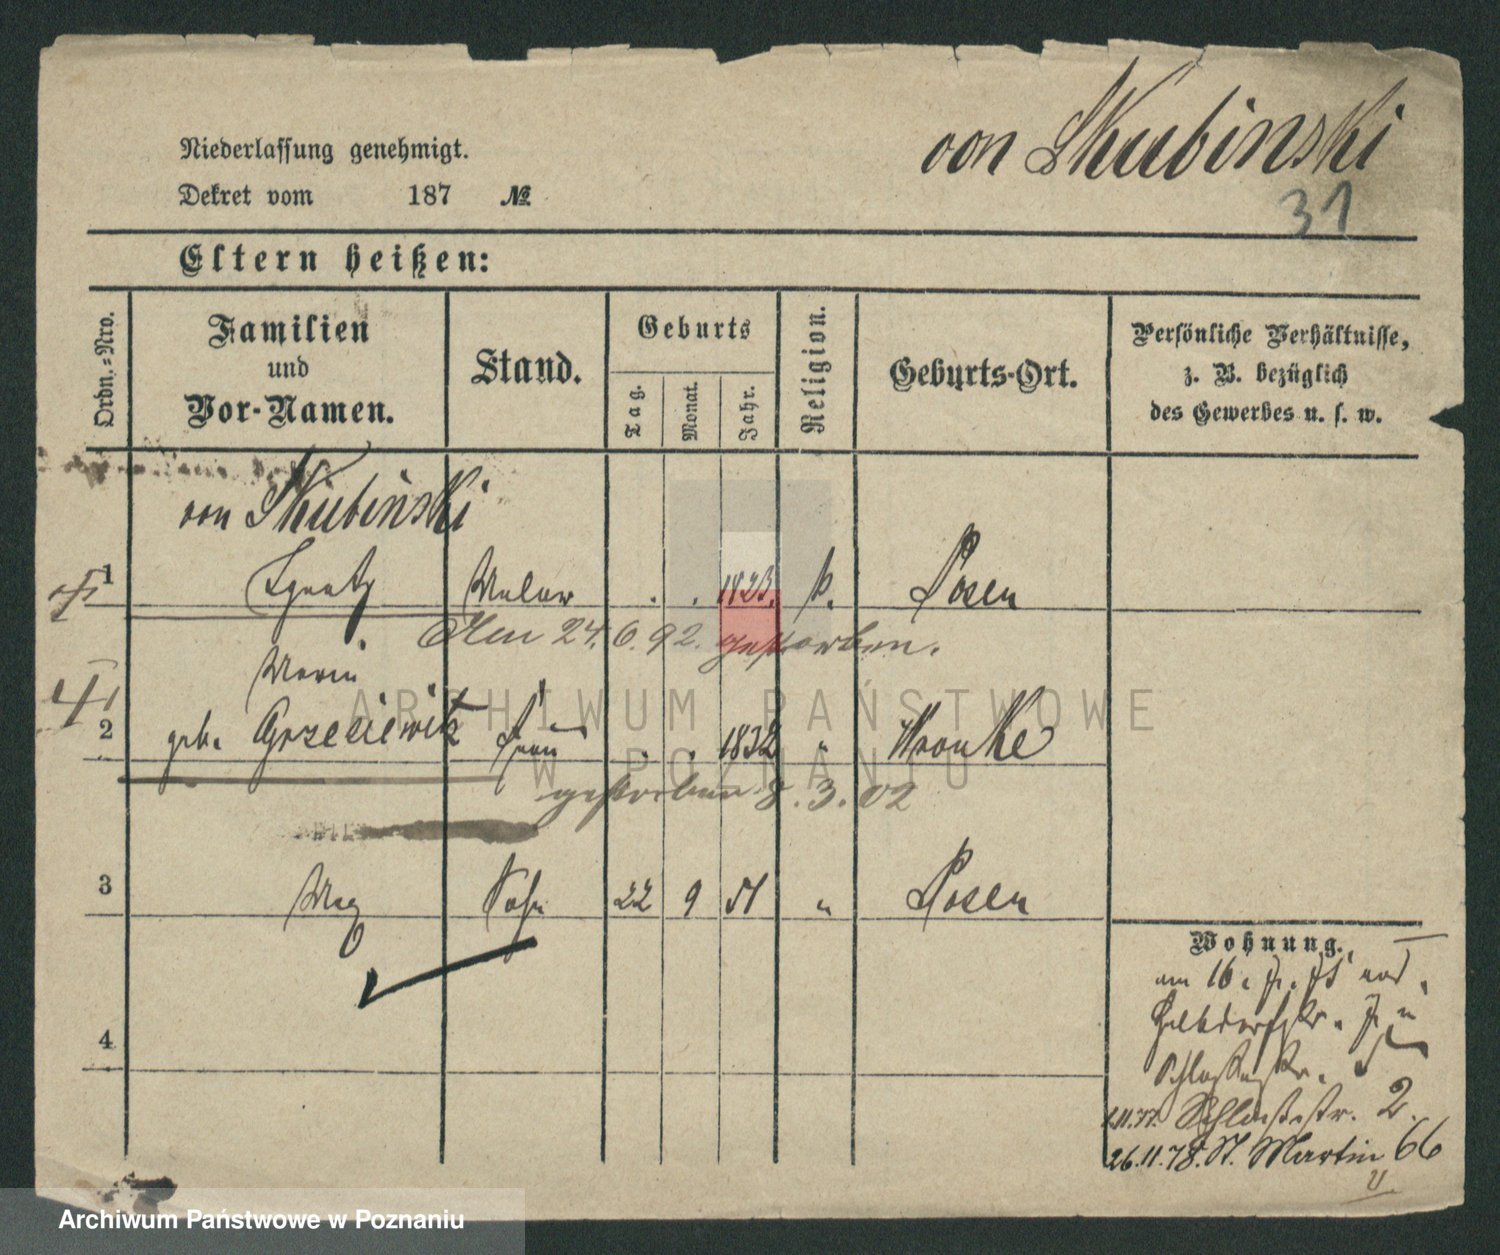 von Skubinski
31
Niederlassung genehmigt.
Dekret vom 187 №
Eltern heißen:
Ordn.-Nro.
Familien
und
Vor-Namen.
Stand.
Geburts
Tag.
Monat.
Jahr.
Religion.
Geburts-Ort.
Persönliche Verhältnisse,
z. B. bezüglich
des Gewerbes u. s. w.
von Skubinski
1 Ignatz Maler . . 1823. k. Posen
Am 24.6.92. gestorben.
Maria
2 geb. Frau . . 1832 " Wronke
gestorben 8.3.02
3 Max Sohn 22 9 51 " Posen
4
Wohnung.
am 16.
Halbdorfstr.
Schloßstr. 2.
26.11.78. St. Martin 66
ARCHIWUM PAŃSTWOWE
W POZNANIU
Archiwum Państwowe w Poznaniu